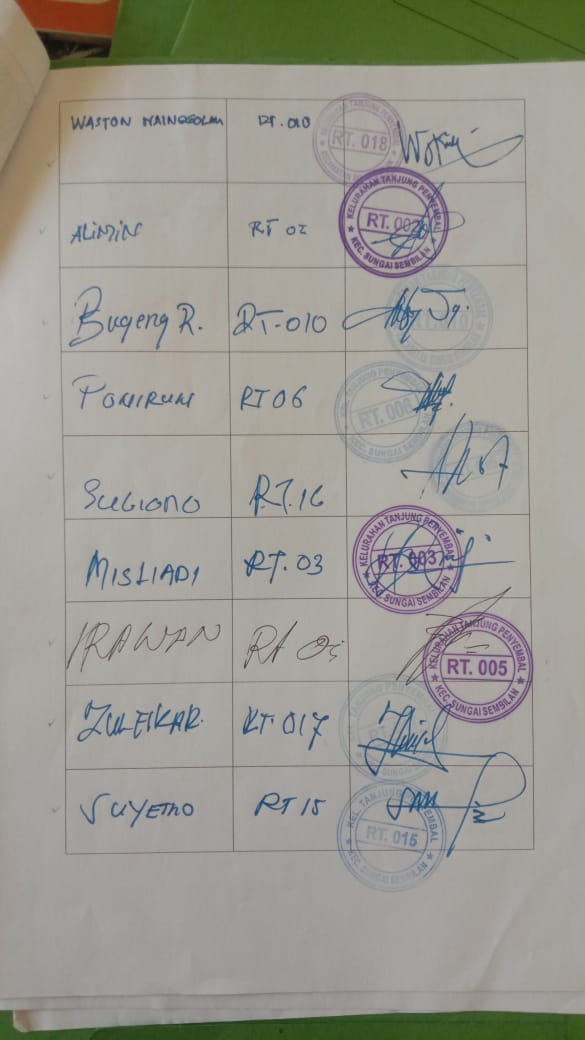 WASTON NAINGGOLAN RT. 018
RT. 018
ALIMIN RT 02
KELURAHAN TANJUNG PENYEMBAL
RT. 002
KEC. SUNGAI SEMBILAN
Bugeng R. RT-010
PONIRUN RT 06
RT. 006
SUGIONO RT. 16
MISLIADI RT. 03
KELURAHAN TANJUNG PENYEMBAL
RT. 003
KEC. SUNGAI SEMBILAN
IRAWAN RT 05
KELURAHAN TANJUNG PENYEMBAL
RT. 005
KEC. SUNGAI SEMBILAN
ZULFIKAR. RT. 017
SUYETNO RT 15
KEL. TANJUNG PENYEMBAL
RT. 015
KEC. SUNGAI SEMBILAN